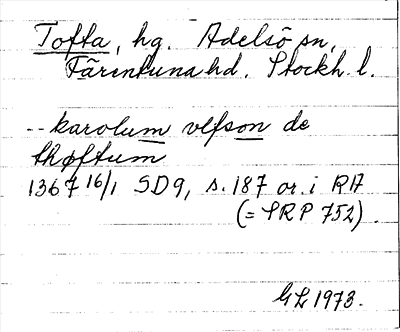 Tofta, hg. Adelsö sn,
Färentuna hd. Stockh. l.
-- karolum vlfson de
thøftum
1367 16/1 SD9, s. 187 or. i RA
(= SRP 752).
GL 1973.